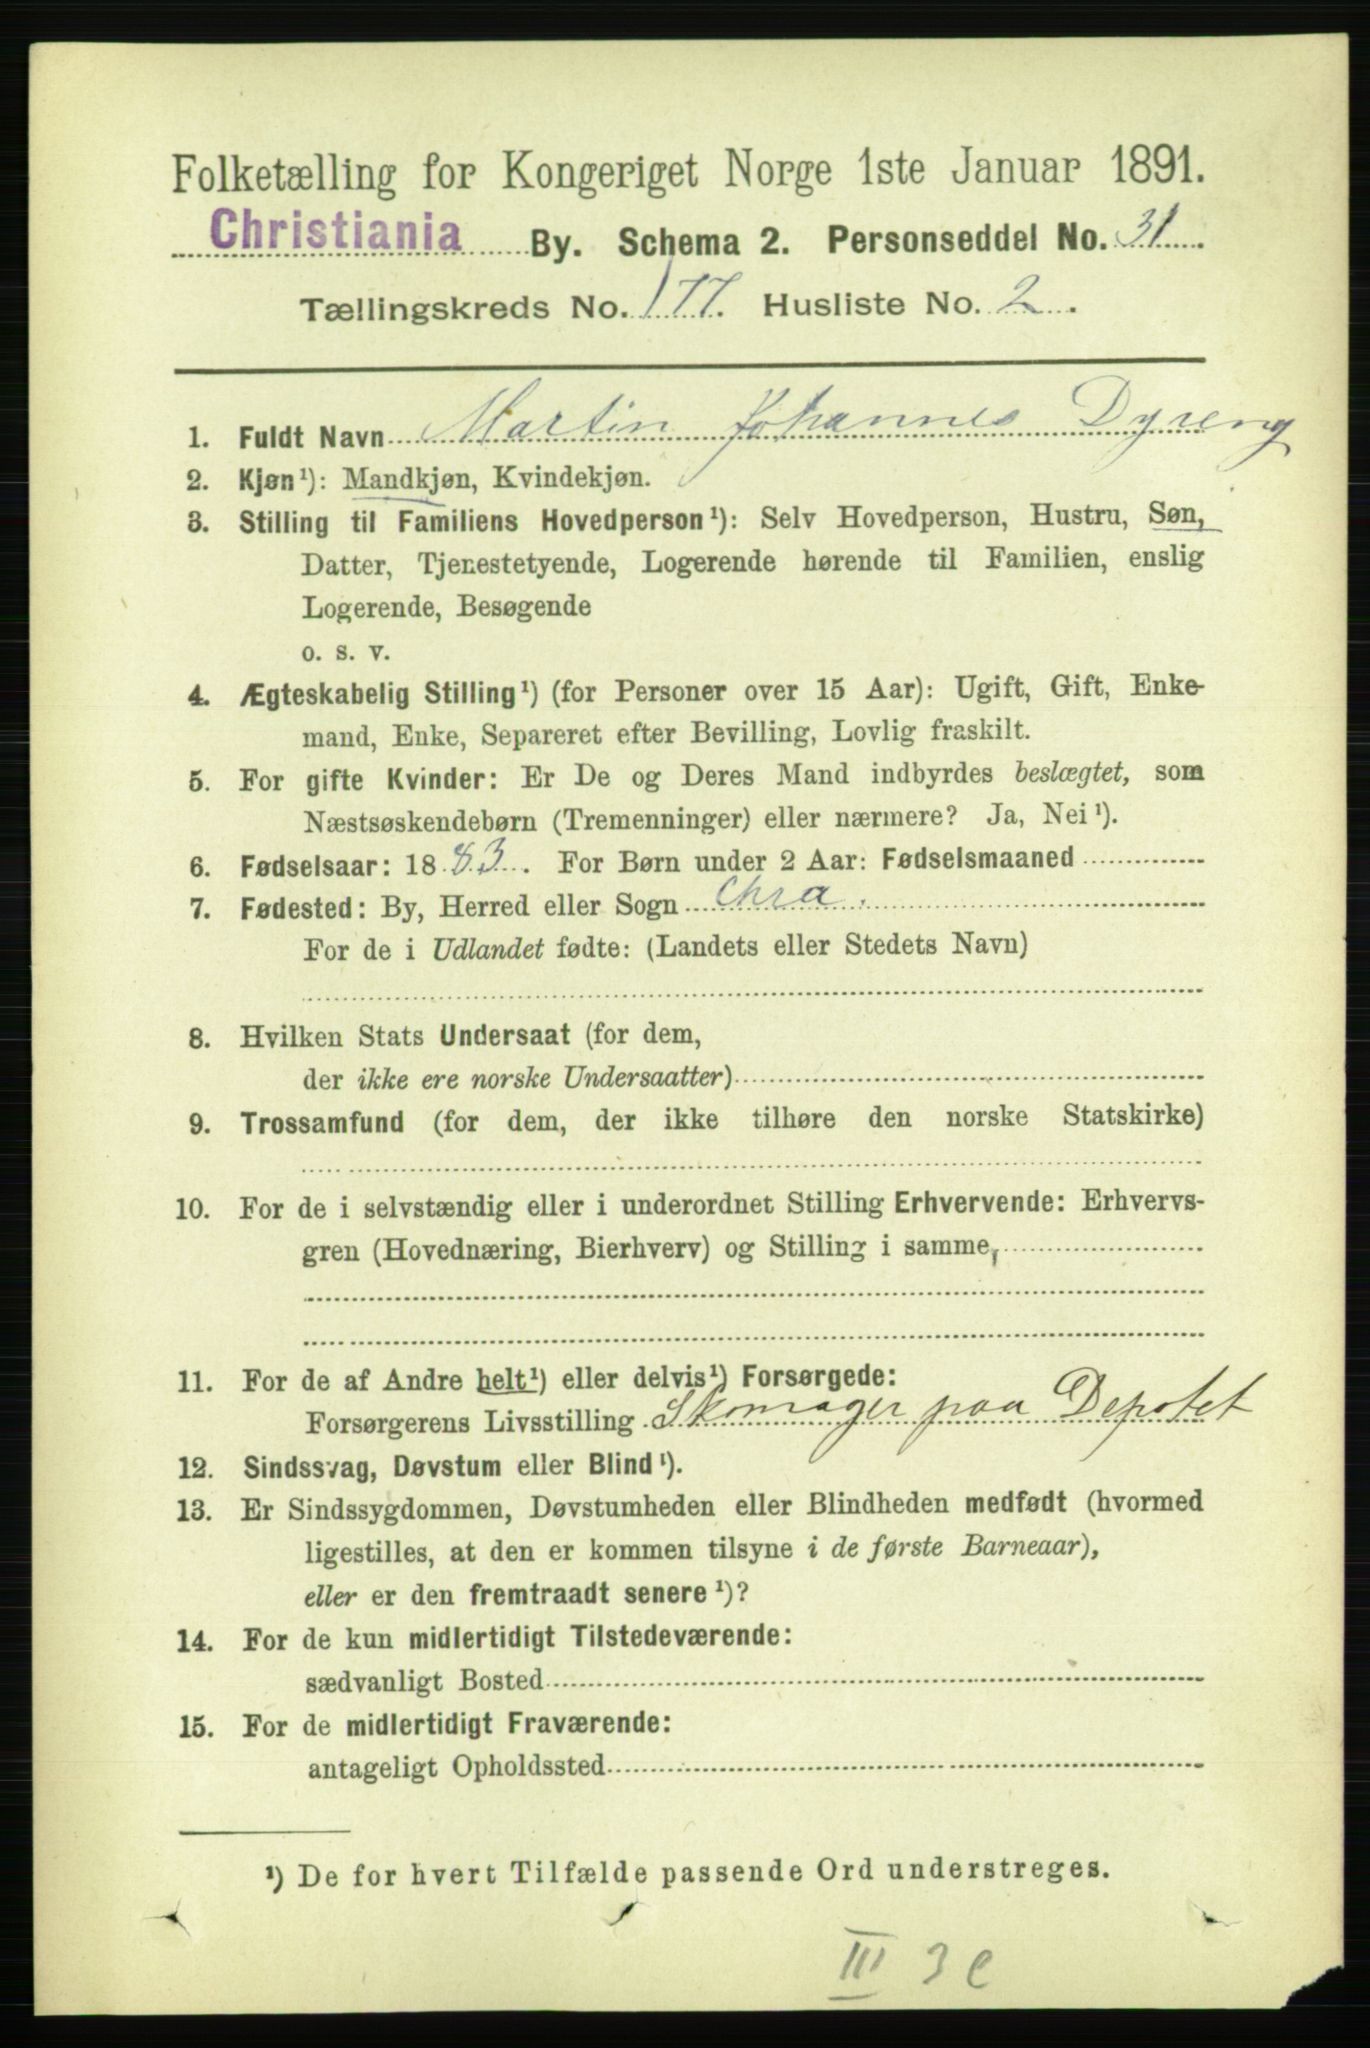 Folketælling for Kongeriget Norge 1ste Januar 1891.
Christiania By. Schema 2. Personseddel No. 31.
Tællingskreds No. 177. Husliste No. 2.
1. Fuldt Navn Martin Johannes Dyreng
2. Kjøn¹): Mandkjøn, Kvindekjøn.
3. Stilling til Familiens Hovedperson¹): Selv Hovedperson, Hustru, Søn,
Datter, Tjenestetyende, Logerende hørende til Familien, enslig
Logerende, Besøgende
o. s. v.
4. Ægteskabelig Stilling¹) (for Personer over 15 Aar): Ugift, Gift, Enke-
mand, Enke, Separeret efter Bevilling, Lovlig fraskilt.
5. For gifte Kvinder: Er De og Deres Mand indbyrdes beslægtet, som
Næstsøskendebørn (Tremenninger) eller nærmere? Ja, Nei¹).
6. Fødselsaar: 1883. For Børn under 2 Aar: Fødselsmaaned
7. Fødested: By, Herred eller Sogn Chra.
For de i Udlandet fødte: (Landets eller Stedets Navn)
8. Hvilken Stats Undersaat (for dem,
der ikke ere norske Undersaatter)
9. Trossamfund (for dem, der ikke tilhøre den norske Statskirke)
10. For de i selvstændig eller i underordnet Stilling Erhvervende: Erhvervs-
gren (Hovednæring, Bierhverv) og Stilling i samme,
11. For de af Andre helt¹) eller delvis¹) Forsørgede:
Forsørgerens Livsstilling Skomager paa Depotet
12. Sindssvag, Døvstum eller Blind¹).
13. Er Sindssygdommen, Døvstumheden eller Blindheden medfødt (hvormed
ligestilles, at den er kommen tilsyne i de første Barneaar),
eller er den fremtraadt senere¹)?
14. For de kun midlertidigt Tilstedeværende:
sædvanligt Bosted
15. For de midlertidigt Fraværende:
antageligt Opholdssted
¹) De for hvert Tilfælde passende Ord understreges.
III 3 e